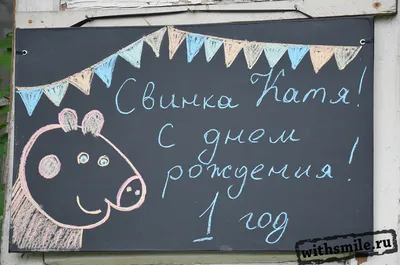 Свинка Катя!
с днем
рождения!
1 год
withsmile.ru